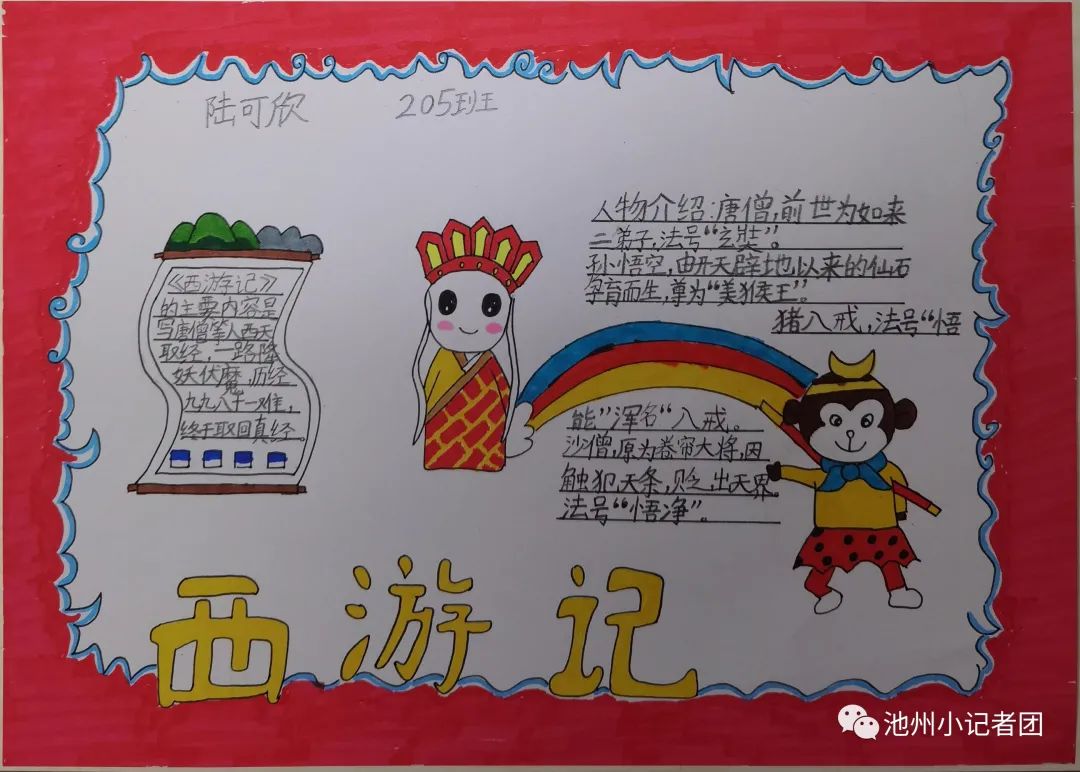 陆可欣 205班
《西游记》
的主要内容是
写唐僧等人西天
取经，一路降
妖伏魔，历经
九九八十一难，
终于取回真经。
人物介绍：唐僧，前世为如来
二弟子，法号“玄奘”。
孙悟空，由开天辟地以来的仙石
孕育而生，尊为“美猴王”。
猪八戒，法号“悟
能”浑名“八戒。
沙僧，原为卷帘大将，因
触犯天条，贬出天界。
法号“悟净”。
西游记
池州小记者团